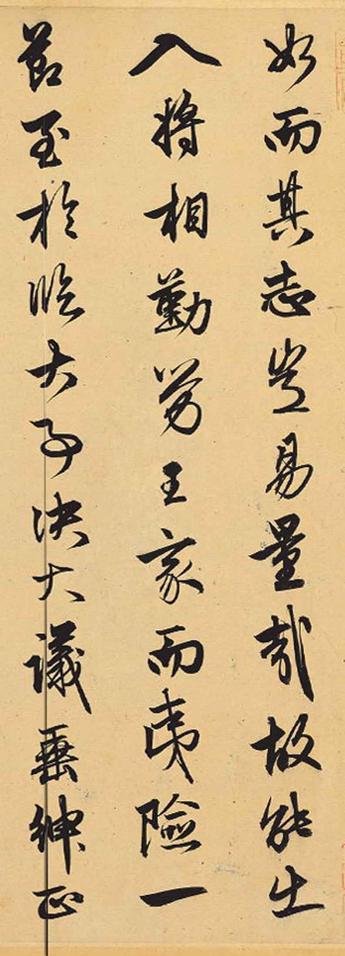 如而其志岂易量哉故能出
入将相勤劳王家而夷险一
节至於临大事决大议垂绅正